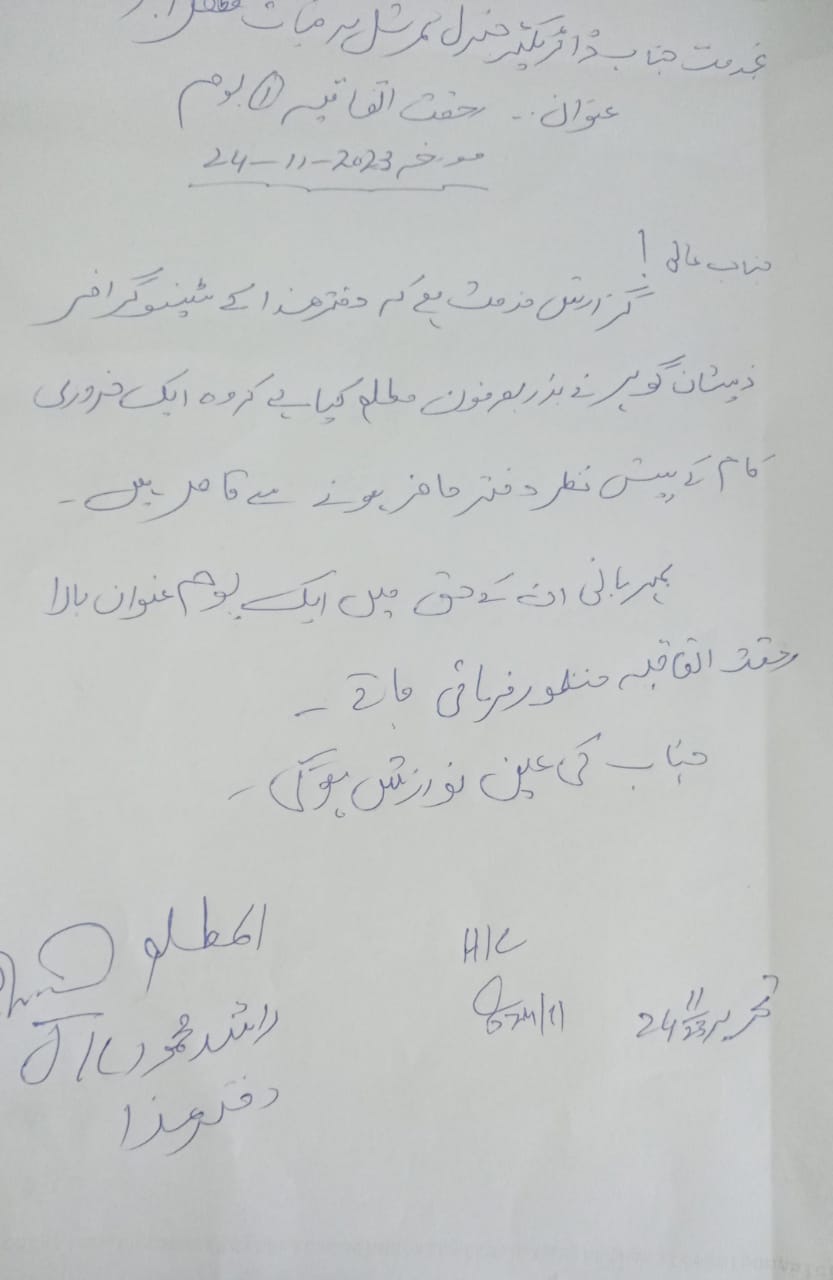 بخدمت جناب ڈائریکٹر جنرل کمرشل
عنوان:- رخصت اتفاقیہ ① یوم
مورخہ 2023-11-24
جناب عالی!
گزارش خدمت ہے کہ دفتر ھذا کے سٹینوگرافر
ذیشان گوہر نے بذریعہ فون مطلع کیا ہے کہ وہ ایک ضروری
کام کے پیش نظر دفتر حاضر ہونے سے قاصر ہیں۔
بمہربانی ان کے حق میں ایک یوم عنوان بالا
رخصت اتفاقیہ منظور فرمائی جائے۔
جناب کی عین نوازش ہوگی۔
المطلع
H/C
تحریر 24/11/23
24/11
راشد محمود
دفتر ھذا